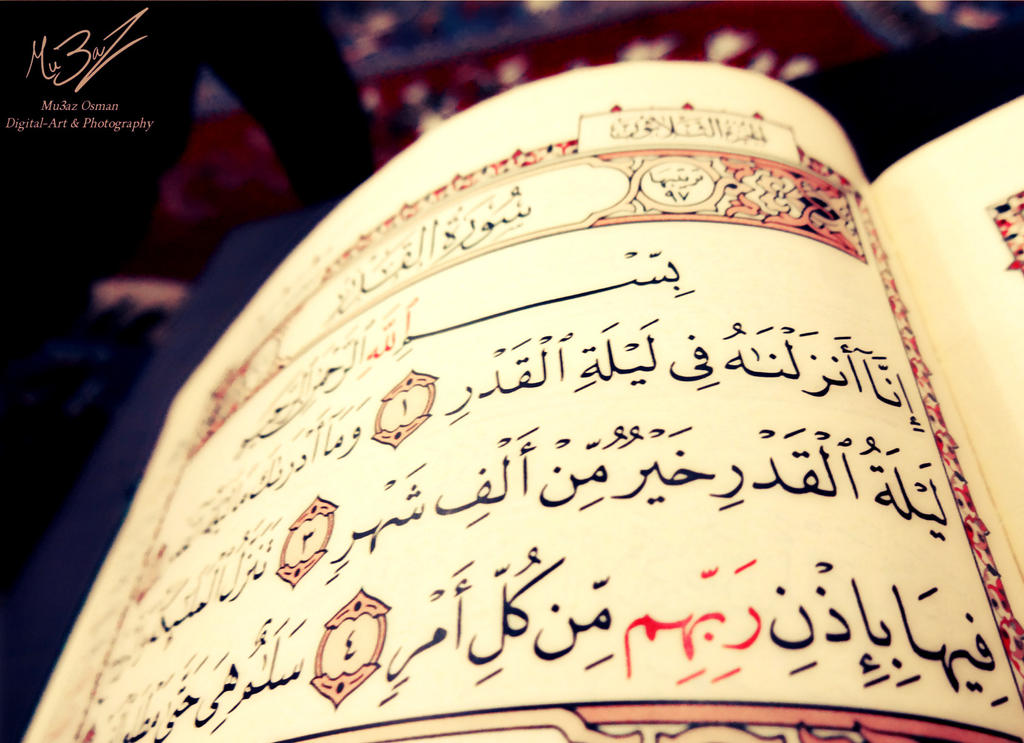 Mu3az
Mu3az Osman
Digital-Art & Photography
الجزء الثلاثون
سُورَةُ القَدْرِ
ترتيبها
٩٧
بِسْمِ اللَّهِ الرَّحْمَٰنِ الرَّحِيمِ
إِنَّآ أَنزَلْنَٰهُ فِى لَيْلَةِ ٱلْقَدْرِ ١ وَمَآ أَدْرَىٰكَ
لَيْلَةُ ٱلْقَدْرِ خَيْرٌ مِّنْ أَلْفِ شَهْرٍ ٣ تَنَزَّلُ ٱلْمَلَٰٓئِكَةُ
فِيهَا بِإِذْنِ رَبِّهِم مِّن كُلِّ أَمْرٍ ٤ سَلَٰمٌ هِىَ حَتَّىٰ